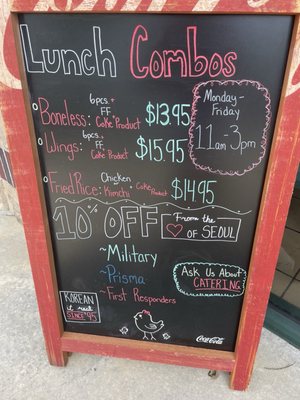 Lunch Combos
Monday -
Friday
11am-3pm
6pcs. +
FF
Boneless: + Coke Product $13.95
6pcs. +
FF
Wings: + Coke Product $15.95
Chicken
Fried Rice: Kimchi + Coke Product $14.95
10% OFF
From the
♡ of SEOUL
~Military
~Prisma
~First Responders
Ask Us About
CATERING
KOREAN
SINCE '95
Coca-Cola